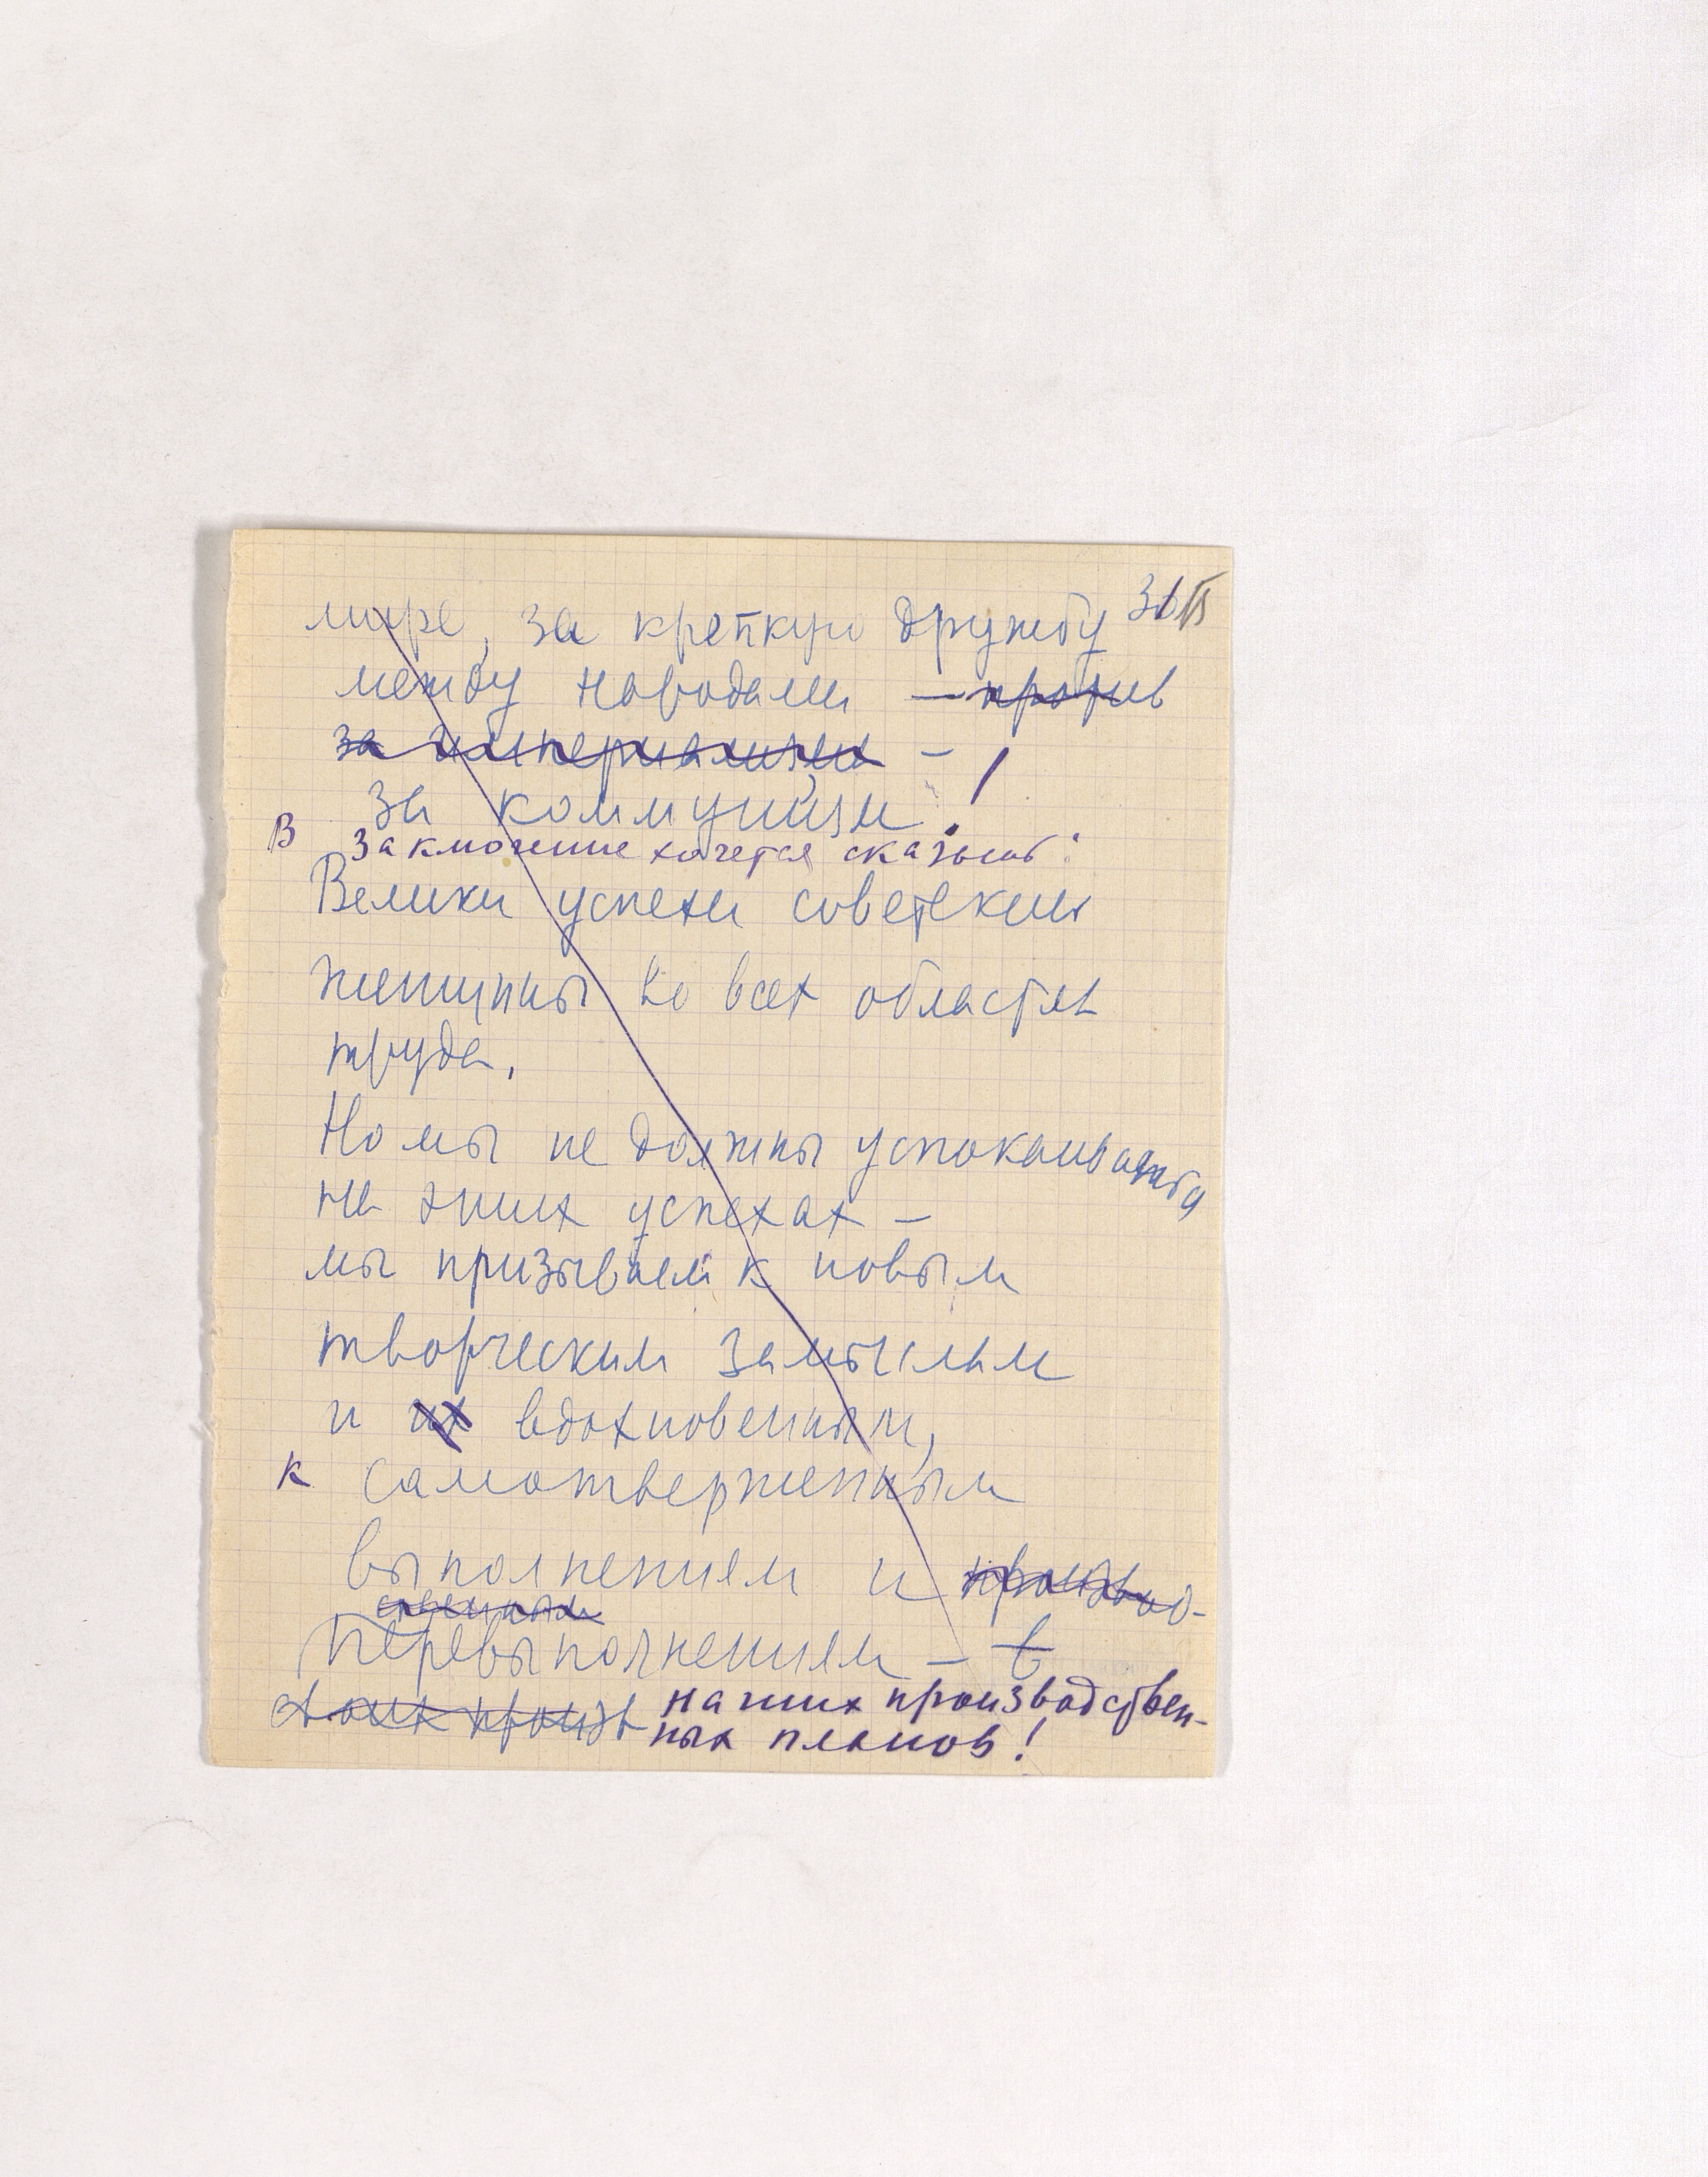 мире, за крепкую дружбу
между народами — против
за империализм —
за коммунизм!
В заключение хочется сказать:
Велики успехи советских
женщины во всех областях
труда.
Но мы не должны успокаиваться
на этих успехах —
мы призываем к новым
творческим замыслам
и их вдохновенным,
к самотверженным
выполнениям и производ-
ственным
перевыполнениям — в
своих произв наших производствен-
ных планов!